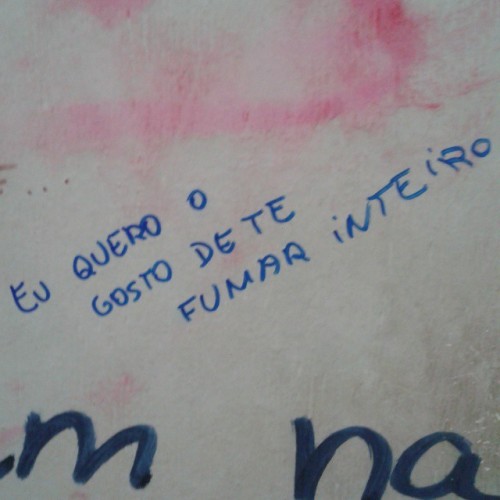 EU QUERO O
GOSTO DE TE
FUMAR iNTEiRO
m na